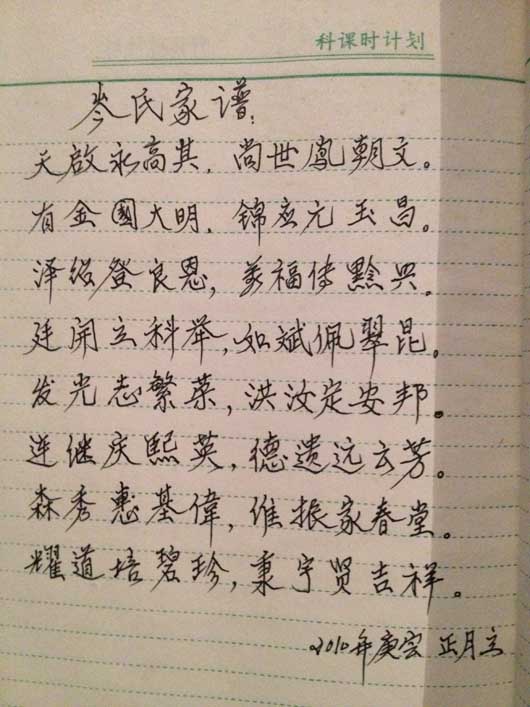 科课时计划
岑氏家谱:
天啟永高其，尚世鳳朝文。
有金國大明，锦应元玉昌。
泽绍登良恩，美福传黔兴。
廷开立科举，如斌佩翠昆。
发光志繁荣，洪汝定安邦。
连继庆熙英，德遗远云芳。
森秀惠基偉，维振家春堂。
耀道培碧珍，秉宇贤吉祥。
2010年庚寅 正月立